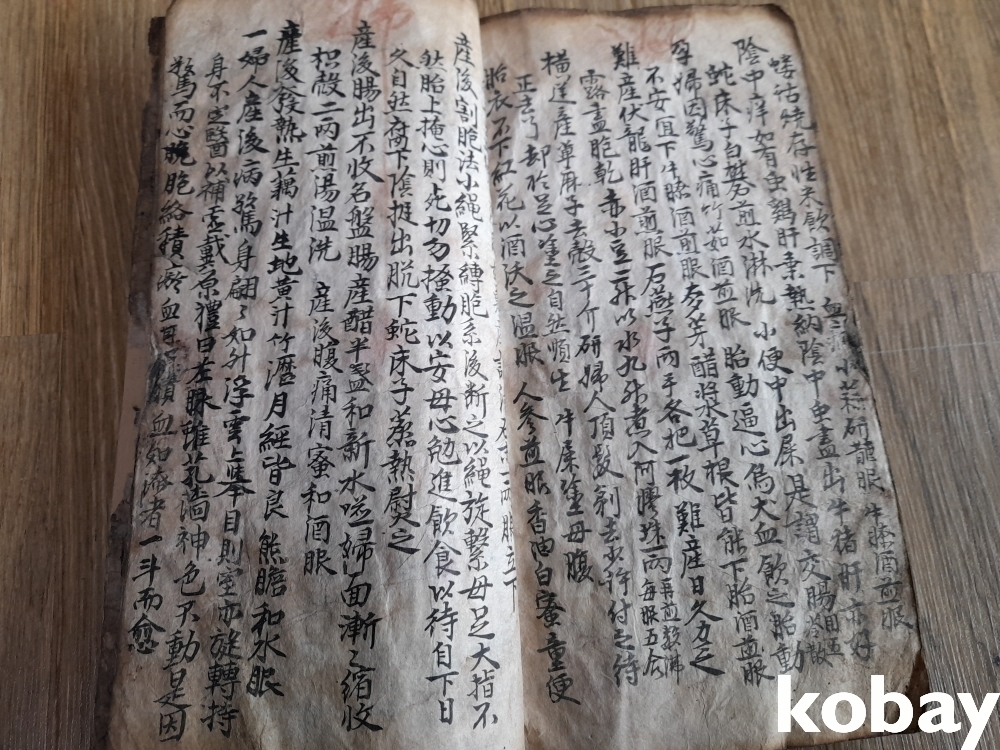 螻蛄燒存性米飮調下 血淋小蒜研龍眼 牛膝酒煎服
陰中痒如有虫鷄肝乗熱納陰中虫盡出牛猪肝亦好
蛇床子白礬煎水淋洗 小便中出屎是謂交腸旧五苓散
孕婦因驚心痛竹茹酒煎服 胎動逼心烏犬血飮之胎動
不安宜下牛膝酒煎服 麥芽醋漿草根皆能下胎酒煎服
難産伏龍肝酒煎服 石燕子兩手各把一枚 難産日久力乏
露盡胞乾 赤小豆二升以水九升煮入阿膠珠一兩再煎數沸每服五合
橫逆産萆麻子去殼三十介研婦人頂髮剃去少許付之待
正去了却於足心塗之自然順生 牛屎塗母腹
胎衣不下紅花以酒沃之溫服 人參煎服香油白蜜重便
産後割胞法小繩緊縛胞系後斷之以繩旋繫母足大指不
然胎上掩心則死切勿搔動以安母心勉進飮食以待自下日
久自然腐下陰挺出脱下蛇床子蒸熱尉之
産後腸出不收名盤腸産醋半盞和新水噀婦面漸之縮收
枳殼二兩煎湯溫洗 産後腹痛清蜜和酒服
産後發熱生藕汁生地黃汁竹瀝月經皆良 熊膽和水服
一婦人産後病驚身翩〻如升浮雲上擧目則室亦旋轉持
身不定醫以補虛戴原禮曰左脉雖芤濇神色不動是因
驚而心脆胞絡積瘀血耳 積血如漆者一斗而愈